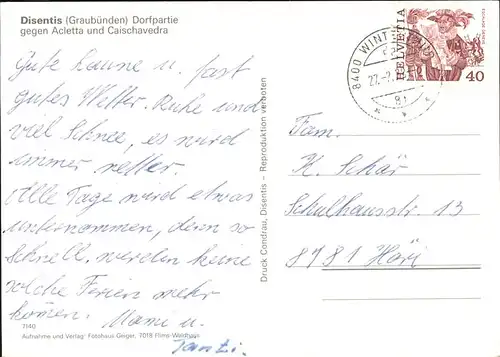 Disentis (Graubünden) Dorfpartie
gegen Acletta und Caischavedra
Gute Laune u. fast
gutes Wetter. Ruhe und
viel Schnee, es wird
immer netter.
Alle Tage wird etwas
unternommen, denn so
schnell werden keine
solche Ferien mehr
kommen. Mami u.
Tanti.
7140
Aufnahme und Verlag: Fotohaus Geiger, 7018 Flims-Waldhaus
Druck Condrau, Disentis – Reproduktion verboten
8400 WINTERTHUR
81
HELVETIA
40
Fam.
H. Schär
Schulhausstr. 13
8181 Höri